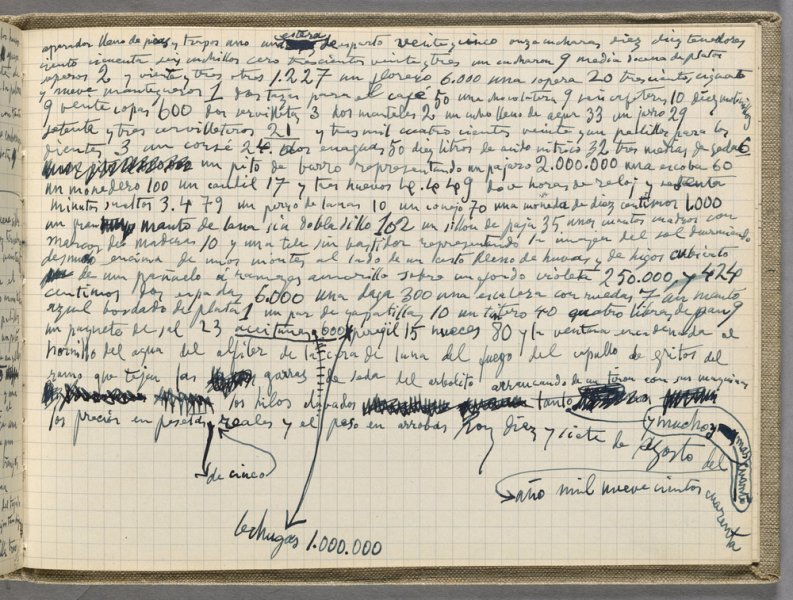 esteras
aparador lleno de y trapos uno una de esparto veinte y cinco cucharas diez diez tenedores
ciento cincuenta seis cuchillos cero trescientos veinte y tres un cucharon 9 media docena de platos
soperos 2 y veinte y tres otros 1.227 un florero 6.000 una sopera 20 trescientos cuarenta
y nueve manteqneros 1 dos tazas para el café 50 una chocolatera 9 seis cafeteras 10 diez
9 veinte copas 600 dos servilletas 3 dos manteles 2 un cubo lleno de agua 33 un jarro 29
setenta y tres servilleteros 21 y tres mil cuatro cientos veinte y un palillos para los
dientes 3 un corsé 24 dos enaguas 50 diez litros de acido nitrico 32 tres medias de seda 6
un pito de barro representando un pajaro 2.000.000 una escoba 60
un monedero 100 un candil 17 y tres huevos 4.449 doce horas de reloj y sesenta
minutos sueltos 3.479 un perro de lanas 10 un conejo 70 una moneda de diez centimos 1.000
un gran manto de lana sin dobladillo 102 un sillon de paja 35 unos cuantos cuadros con
marcos de maderas 10 y una tela sin bastidor representando la imagen del sol durmiendo
desnudo encima de unos montes al lado de un cesto lleno de huevos y de higos cubierto
de un pañuelo a ramages amarillo sobre un fondo violeta 250.000 y 424
centimos dos espadas 6.000 una daga 300 una escalera con ruedas 7 un manto
azul bordado de plata 1 un par de zapatillas 10 un tintero 40 quatro libras de pan 9
un paquete de sal 23 aceitunas 600 perejil 15 nueces 80 y la ventana encadenada al
hornillo del agua del alfiler de la cera de luna del fuego del capullo de gritos del
ramo que tejen las garras de seda del arbolito arrancando de un tiron con sus
los hilos tanto y muchos
los precios en pesetas y reales y el peso en arrobas hoy diez y siete de Agosto del
de cinco
año mil nueve cientos cuarenta
lechugas 1.000.000